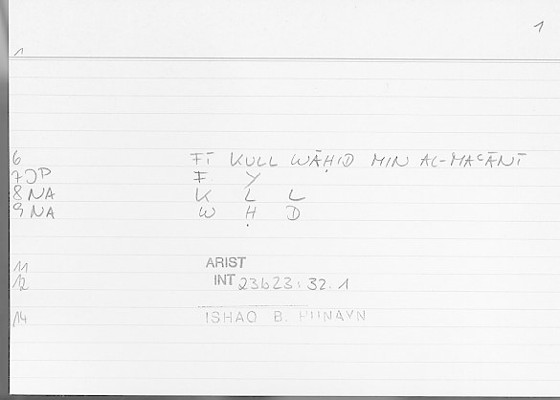 1
1
6 FĪ KULL WĀḤID MIN AL-MAʿĀNĪ
7 JP F Y
8 NA K L L
9 NA W Ḥ D
11 ARIST
12 INT 23b23:32.1
14 ISHAQ B. HUNAYN